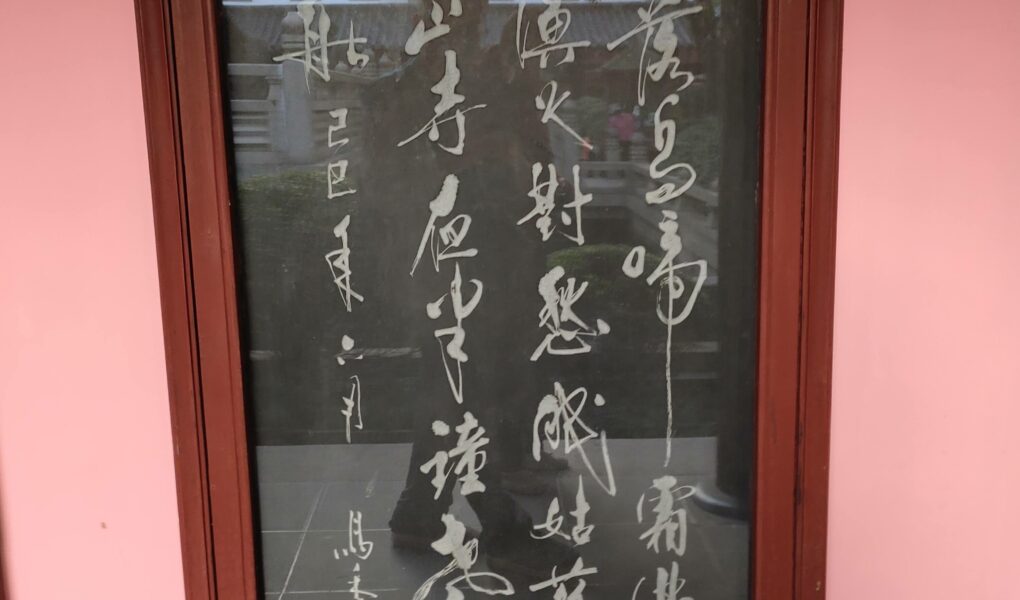 落烏啼霜滿
漁火對愁眠姑蘇
山寺夜半鐘聲
船己巳年六月